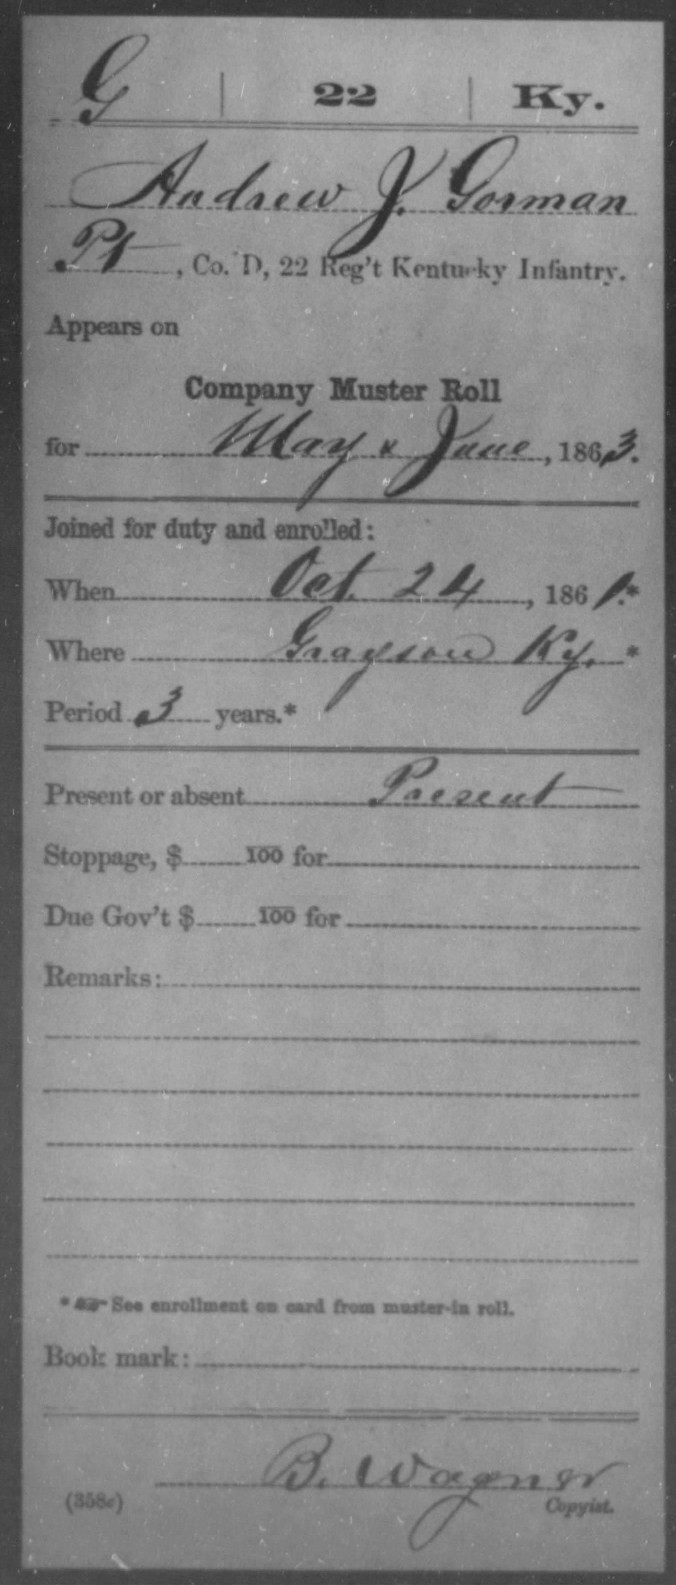 G | 22 | Ky.
Andrew J. Gorman
Pt, Co. D, 22 Reg't Kentucky Infantry.
Appears on
Company Muster Roll
for May & June, 1863.
Joined for duty and enrolled:
When Oct. 24, 1861.*
Where Grayson Ky.*
Period 3 years.*
Present or absent Present
Stoppage, $ 100 for
Due Gov't $ 100 for
Remarks:
* See enrollment on card from muster-in roll.
Book mark:
B. Wagner
(358c) Copyist.